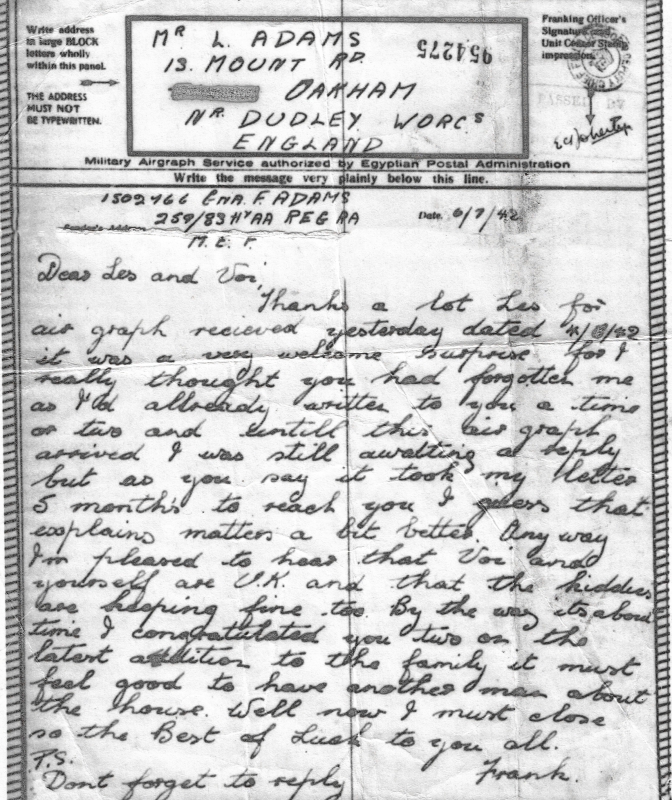 Write address
in large BLOCK
letters wholly
within this panel.
THE ADDRESS
MUST NOT
BE TYPEWRITTEN.
Mr L. ADAMS
13. MOUNT RD.
OAKHAM
Nr. DUDLEY WORCs
ENGLAND
954275
Franking Officer's
Signature and
Unit Censor Stamp
impression.
PASSED BY
Military Airgraph Service authorized by Egyptian Postal Administration
Write the message very plainly below this line.
1502466 GNR. F. ADAMS
259/83 HY AA REG RA
Sender's Address
M.E.F.
Date. 6/7/42
Dear Les and Voi,
Thanks a lot Les for
air graph recieved yesterday dated
it was a very welcome surprise for I
really thought you had forgotten me
as I'd allready written to you a time
or two and untill this air graph
arrived I was still awaiting a reply
but as you say it took my letter
5 month's to reach you I guess that
explains matters a bit better. Any way
I'm pleased to hear that Voi and
yourself are O.K. and that the kiddies
are keeping fine too By the way its about
time I congratulated you two on the
latest addition to the family it must
feel good to have another man about
the house. Well now I must close
so the Best of Luck to you all.
Frank.
P.S.
Dont forget to reply